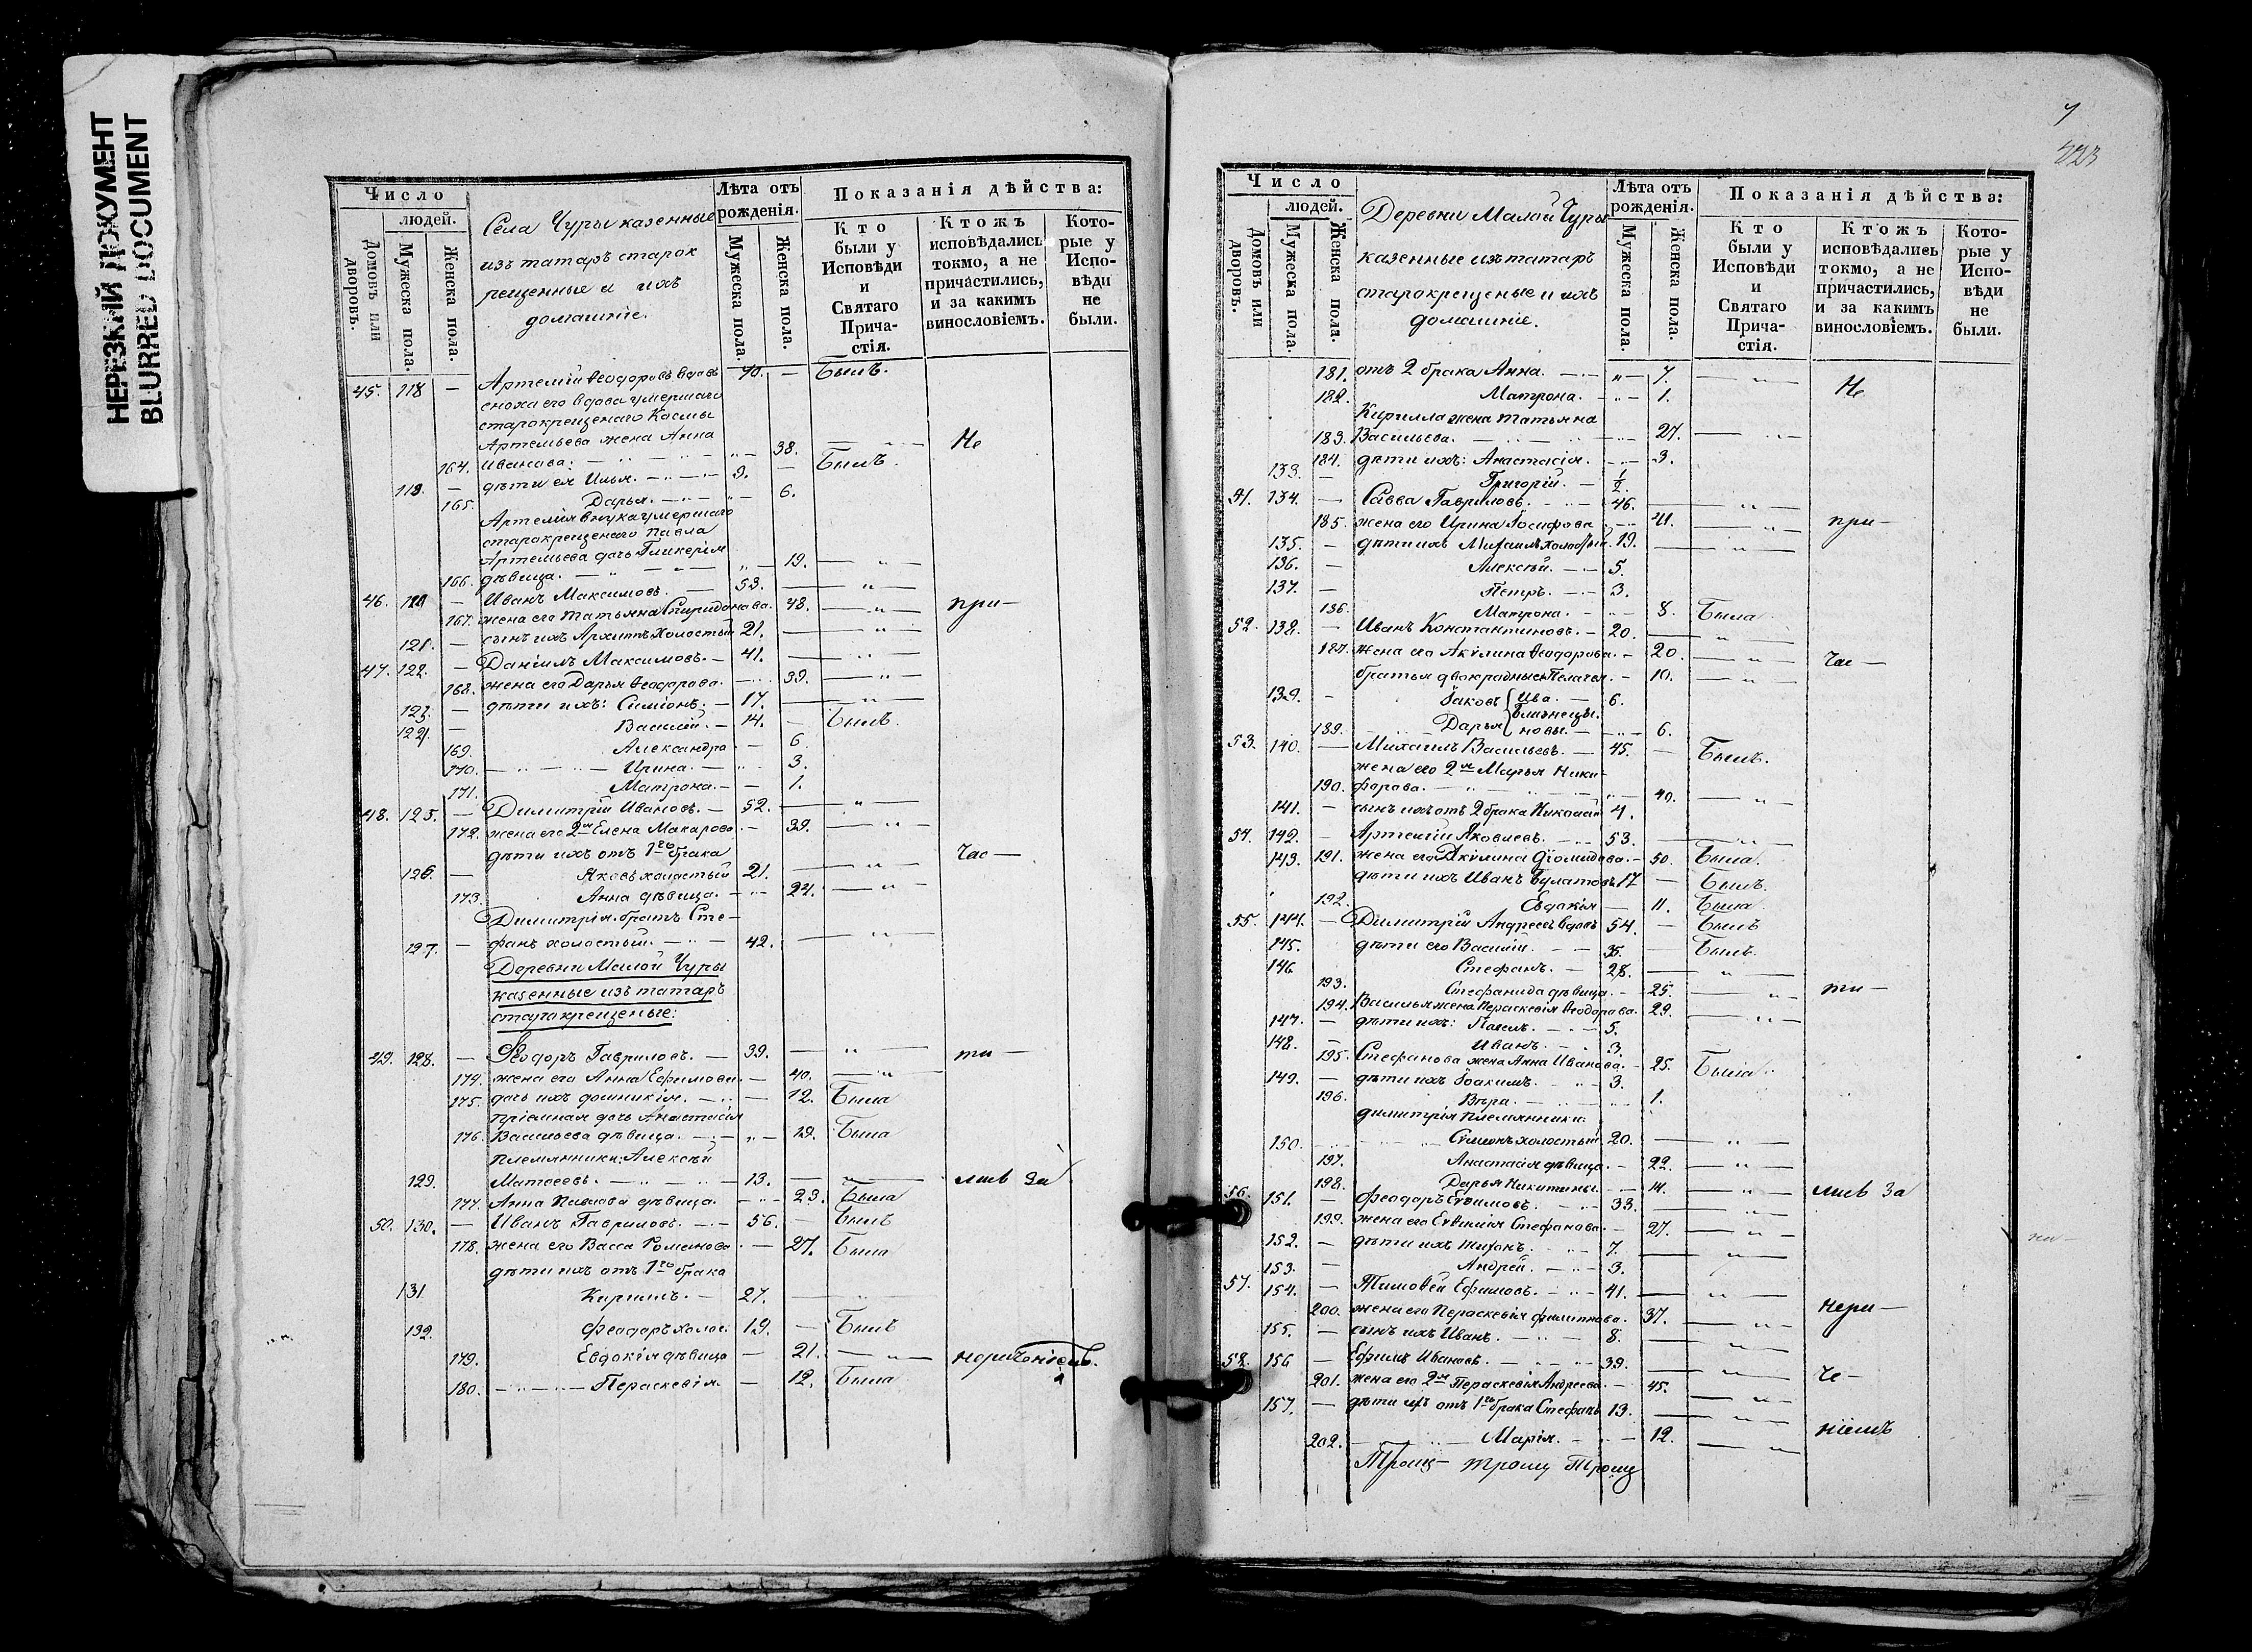 НЕРЕЗКИЙ ДОКУМЕНТ
BLURRED DOCUMENT
Число
людей.
Домовъ или дворовъ.
Мужеска пола.
Женска пола.
Села Чуры казенные
изъ татаръ старок
рещенные и ихъ
домашніе.
Лѣта отъ
рожденія.
Мужеска пола.
Женска пола.
Показанія дѣйства:
Кто
были у
Исповѣди
и
Святаго
Прича-
стія.
Ктожъ
исповѣдались
токмо, а не
причастились,
и за какимъ
винословіемъ.
Кото-
рые у
Испо-
вѣди
не
были.
45. 118 — Артемій Ѳеодоровъ вдовъ 70. — Былъ.
сноха его вдова умершаго
старокрещенаго Касмы
Артемьева жена Анна
164. Иванова. 38. Не
119. — дѣти ея Илья. 9. — Былъ.
165. Дарья. 6.
Артемія внука умершаго
старокрещенаго Павла
Артемьева дочь Гликерія
166. дѣвица. 19. — „ —
46. 120 — Иванъ Максимовъ. 53. — „ —
167. жена его Татьяна Спиридонова. 48. — „ — при—
121. — сынъ ихъ Архипъ холостый 21. — „ —
47. 122. — Даніилъ Максимовъ. — 41. — „ —
168. жена его Дарья Ѳеодорова. 39. — „ —
123. — дѣти ихъ: Симіонъ. — 17. — „ —
124. — Василій. — 14. — Былъ.
169. Александра — 6.
170. Ирина. 3.
171. Матрона. — 1.
48. 125. — Димитрій Ивановъ. — 52. — „ —
172. жена его 2я Елена Макарова. — 39. — „ —
дѣти ихъ отъ 1го брака час—
126. — Яковъ холостый 21. — „ —
173. Анна дѣвица. 22. — „ —
Димитрія братъ Сте—
127. — фанъ холостый. 42. — „ —
Деревни Малой Чуры
казенные изъ татаръ
старокрещеные:
49. 128. — Ѳеодоръ Гавриловъ. — 39. — „ — ти—
174. жена его Анна Ефимова. — 40. — „ —
175. дочь ихъ Домникія. 12. Была
Пріемная дочь Анастасія
176. Васильева дѣвица. 19. Была
Племянники: Алексѣй
129. Матвеевъ. 13. — „ — лись за
177. Анна Павлова дѣвица. 23. Была
50. 130. — Иванъ Гавриловъ. 56. — Былъ
178. жена его Васса Романова. — 27. Была
дѣти ихъ отъ 1го брака
131 Кириллъ. — 27. — „ —
132. Феодоръ холос. 19. — Былъ
179. Евдокія дѣвица — 21. — „ —
180. Пераскевія. — 12. Была
7
223
Число
людей.
Домовъ или дворовъ.
Мужеска пола.
Женска пола.
Деревни Малой Чуры
казенные изъ татаръ
старокрещеные и ихъ
домашніе.
Лѣта отъ
рожденія.
Мужеска пола.
Женска пола.
Показанія дѣйства:
Кто
были у
Исповѣди
и
Святаго
Прича-
стія.
Ктожъ
исповѣдались
токмо, а не
причастились,
и за какимъ
винословіемъ.
Кото-
рые у
Испо-
вѣди
не
были.
181. отъ 2 брака Анна. 7. — „ — Не
182. Матрона. 1.
Кирилла жена Татьяна
183. Васильева. 27. — „ —
184. дѣти ихъ: Анастасія. 3.
133. — Григорій. — 1/2.
51. 134. — Савва Гавриловъ. 46. — „ —
185. жена его Ирина Іосифова 41. — „ — при—
135. — дѣти ихъ Михаилъ холостый. 19. — „ —
136. — Алексѣй. 5.
137. — Петръ. 3.
186. Матрона. 8. Была
52. 138. — Иванъ Константиновъ. — 20. — „ —
187. жена его Акилина Ѳеодорова. — 20. — „ — час—
братья двоюродные Пелагея. — 10. — „ —
139. — Іаковъ Ива 6.
близнецы.
189. Дарья новы. — 6.
53. 140. — Михаилъ Васильевъ. — 45. — Былъ.
жена его 2я Марья Ники—
190. форова. 40. — „ —
141. — сынъ ихъ отъ 2 брака Николай 4.
54. 142. — Артемій Яковлевъ. 53. — „ —
143. 191. жена его Акилина Діомидова. — 50. Была.
дѣти ихъ Иванъ 17 — Былъ.
192. Евдокія — 11. Была
55. 144. — Димитрій Андреевъ вдовъ 54. — Былъ
145. дѣти его Василій. 35. — Былъ.
146 Стефанъ. — 28. — „ —
193. Стефанида дѣвица. — 25. — „ — ти—
194. Василья жена Пераскевія Ѳеодорова. 29. — „ —
147. — дѣти ихъ: Павелъ. 5.
148. — Иванъ. 3.
195. Стефанова жена Анна Иванова. — 25. Была
149. — дѣти ихъ Іоакимъ. 3.
196. Вѣра. 1.
Димитрія племянники:
150. Симеонъ холостый 20. — „ —
197. Анастасія дѣвица. — 22. — „ —
198. Дарья Никитины. 14. — „ — лись за
56. 151. — Феодоръ Евфимовъ. 33. — „ —
199. жена его Евфимія Стефанова. — 27. — „ —
152. — дѣти ихъ Тихонъ. 7. — „ —
153. — Андрей. 3.
57. 154. — Тимоѳей Ефимовъ. 41. — „ —
200. жена его Пераскевія Филиппова. 37. — „ — нери—
155. — сынъ ихъ Иванъ. 8. — „ —
58. 156 — Ефимъ Ивановъ. 39. — „ — че—
201. жена его 2я Пераскевія Андреева. — 45. — „ —
157. — дѣти ихъ отъ 1го брака Стефанъ 13. — „ —
202. Марія. 12. — „ — ніемъ